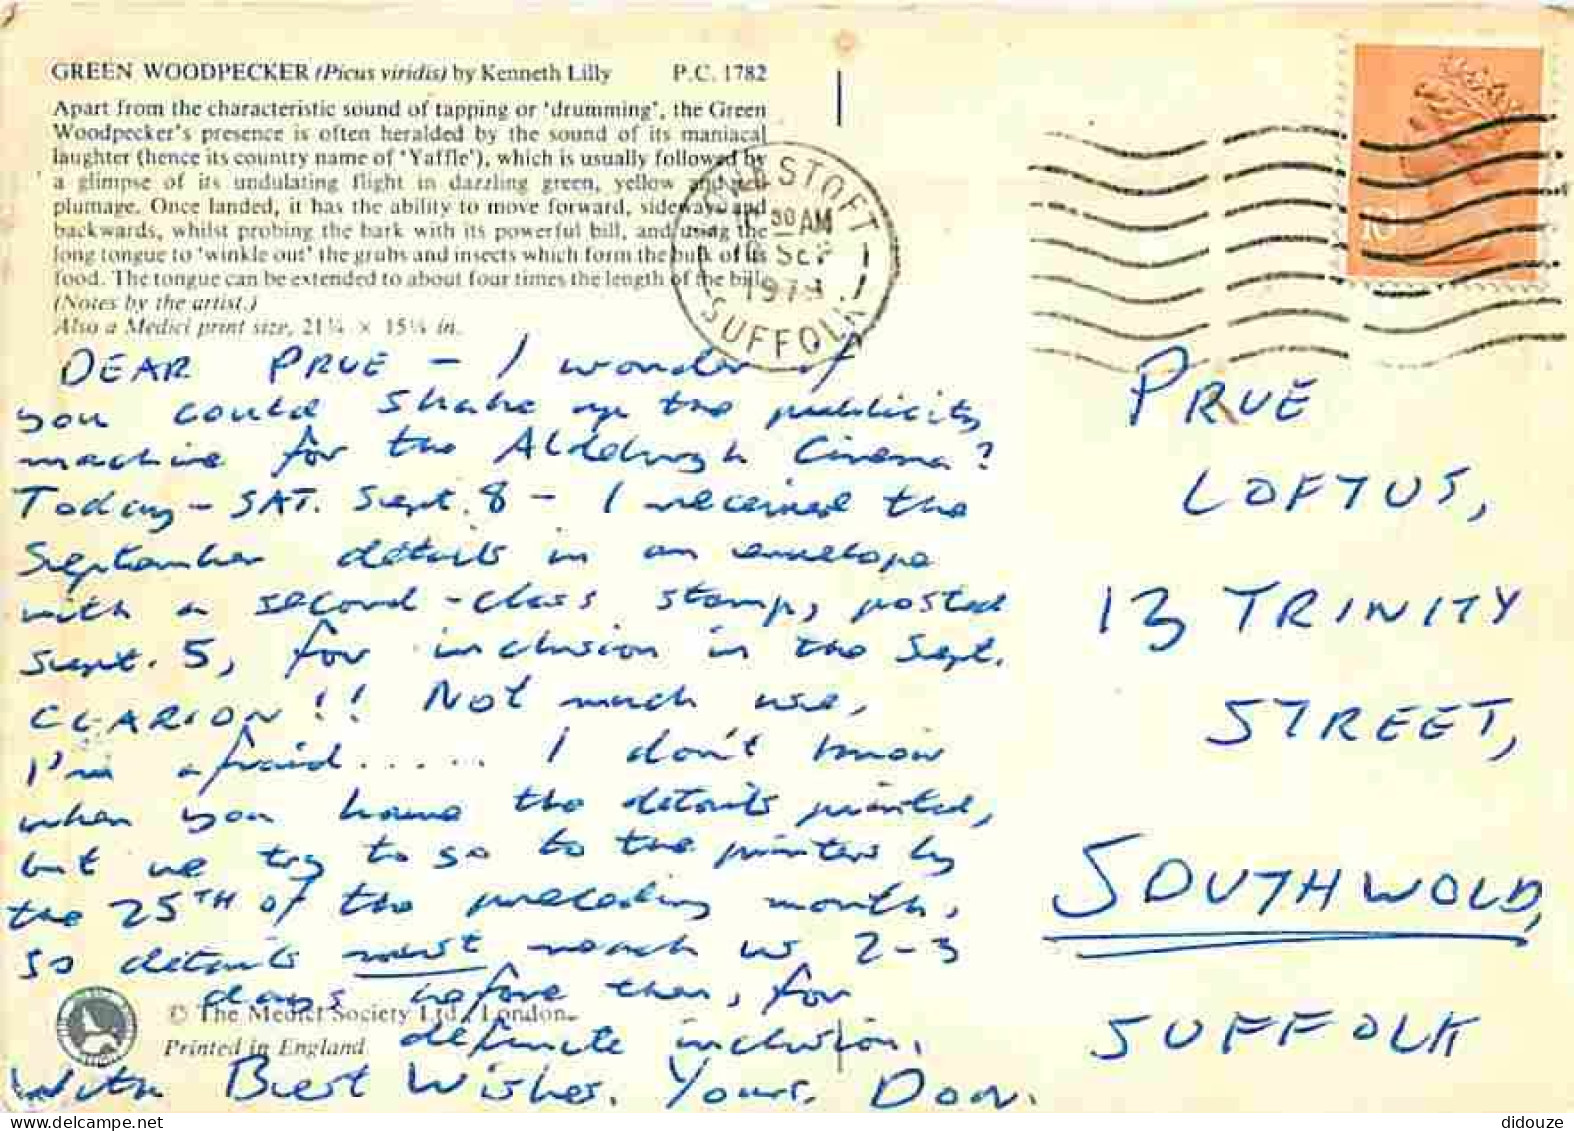 GREEN WOODPECKER (Picus viridis) by Kenneth Lilly P.C. 1782
Apart from the characteristic sound of tapping or 'drumming', the Green
Woodpecker's presence is often heralded by the sound of its maniacal
laughter (hence its country name of 'Yaffle'), which is usually followed by
a glimpse of its undulating flight in dazzling green, yellow and red
plumage. Once landed, it has the ability to move forward, sideways and
backwards, whilst probing the bark with its powerful bill, and using the
long tongue to 'winkle out' the grubs and insects which form the bulk of its
food. The tongue can be extended to about four times the length of the bill.
(Notes by the artist.)
Also a Medici print size, 21¼ × 15¼ in.
30 AM
SEP
1979
SUFFOLK
DEAR PRUE - I wonder if
you could shake up the publicity
machine for the Aldeburgh Cinema?
Today - SAT. Sept. 8 - I received the
September details in an envelope
with a second-class stamp, posted
Sept. 5, for inclusion in the Sept.
CLARION!! Not much use,
I'm afraid...... I don't know
when you have the details printed,
but we try to go to the printers by
the 25TH of the preceding month,
so details must reach us 2-3
days before then, for
definite inclusion.
With Best Wishes. Yours, Don.
PRUE
LOFTUS,
13 TRINITY
STREET,
SOUTHWOLD,
SUFFOLK
© The Medici Society Ltd., London.
Printed in England
didouze